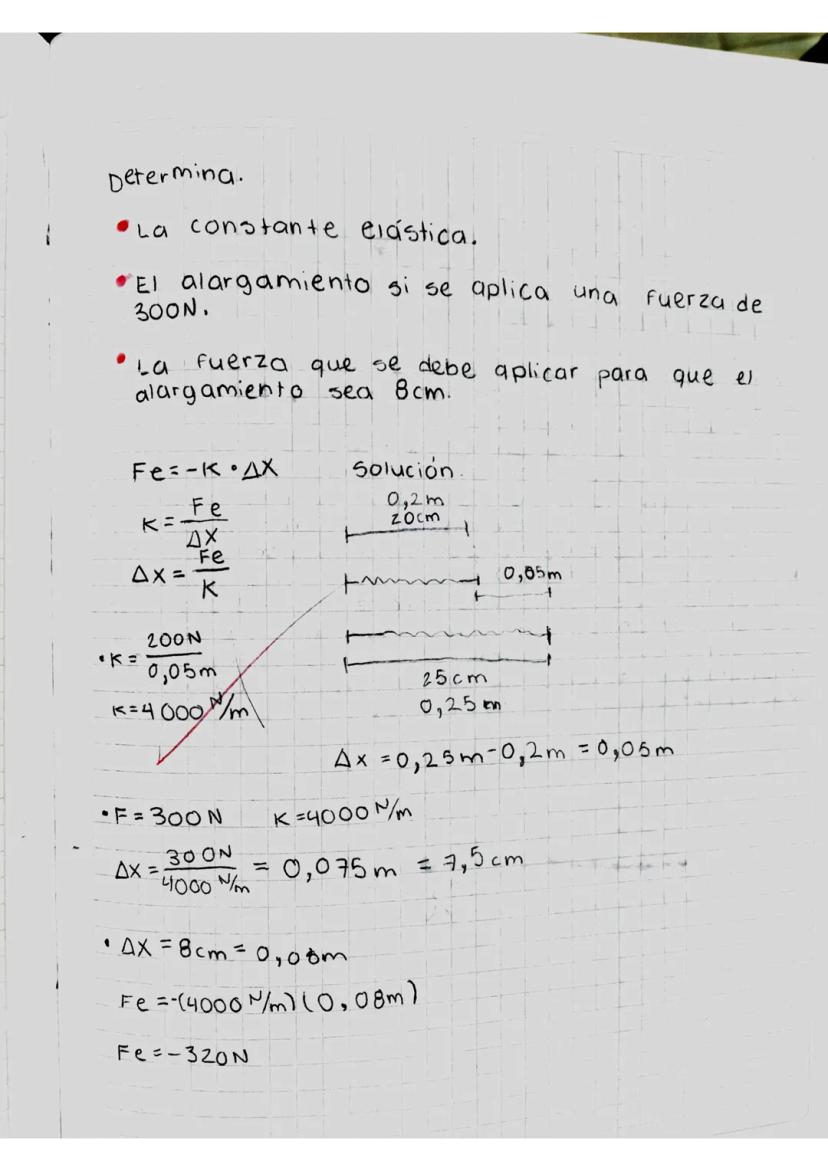 Determina.
• La constante elástica.
• El alargamiento si se aplica una fuerza de
300N.
• La fuerza que se debe aplicar para que el
alargamiento sea 8cm.
Fe=-K•ΔX
K=Fe/ΔX
Δx=Fe/K
•K=200N/0,05m
K=4000 N/m
Solución.
0,2m
20cm
0,05m
25cm
0,25m
Δx=0,25m-0,2m=0,05m
•F=300N K=4000 N/m
Δx=300N/4000 N/m = 0,075m = 7,5cm
• Δx=8cm=0,08m
Fe=-(4000 N/m)(0,08m)
Fe=-320N